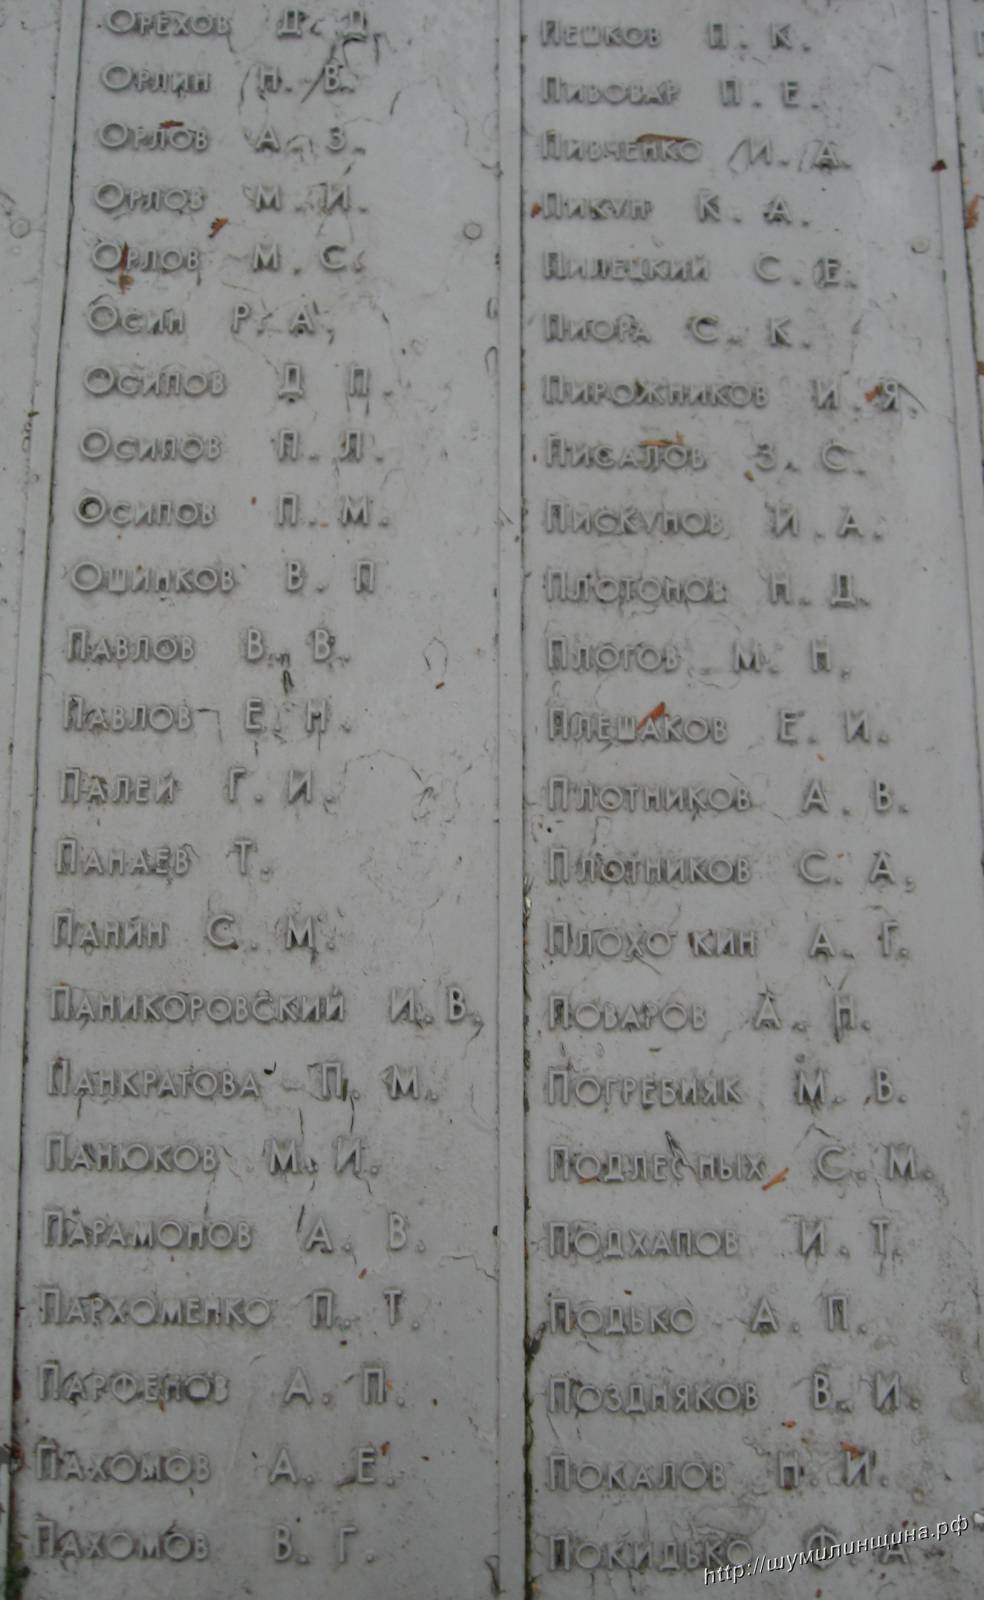 Орехов Д. Д.
Орлин Н. В.
Орлов А. З.
Орлов М. И.
Орлов М. С.
Осин Р. А.
Осипов Д П.
Осипов П. Л.
Осипов П. М.
Ошипков В. П
Павлов В. В.
Павлов Е. Н.
Палей Г. И.
Панаев Т.
Панин С. М.
Паникоровский И. В.
Панкратова П. М.
Панюков М. И.
Парамонов А. В.
Пархоменко П. Т.
Парфенов А. П.
Пахомов А. Е.
Пахомов В. Г.
Пешков П. К.
Пивовар П. Е.
Пивченко И. А.
Пикун К. А.
Пилецкий С. Е.
Пиора С. К.
Пирожников И. Я.
Писалов З. С.
Пискунов И. А.
Плотонов Н. Д.
Плогов М. Н.
Плешаков Е. И.
Плотников А. В.
Плотников С. А.
Плохо кин А. Г.
Поваров А. Н.
Погребняк М. В.
Подлесных С. М.
Подхапов И. Т.
Подько А. П.
Поздняков В. И.
Покалов Н. И.
Покидько Ф. А
http://шумилинщина.рф